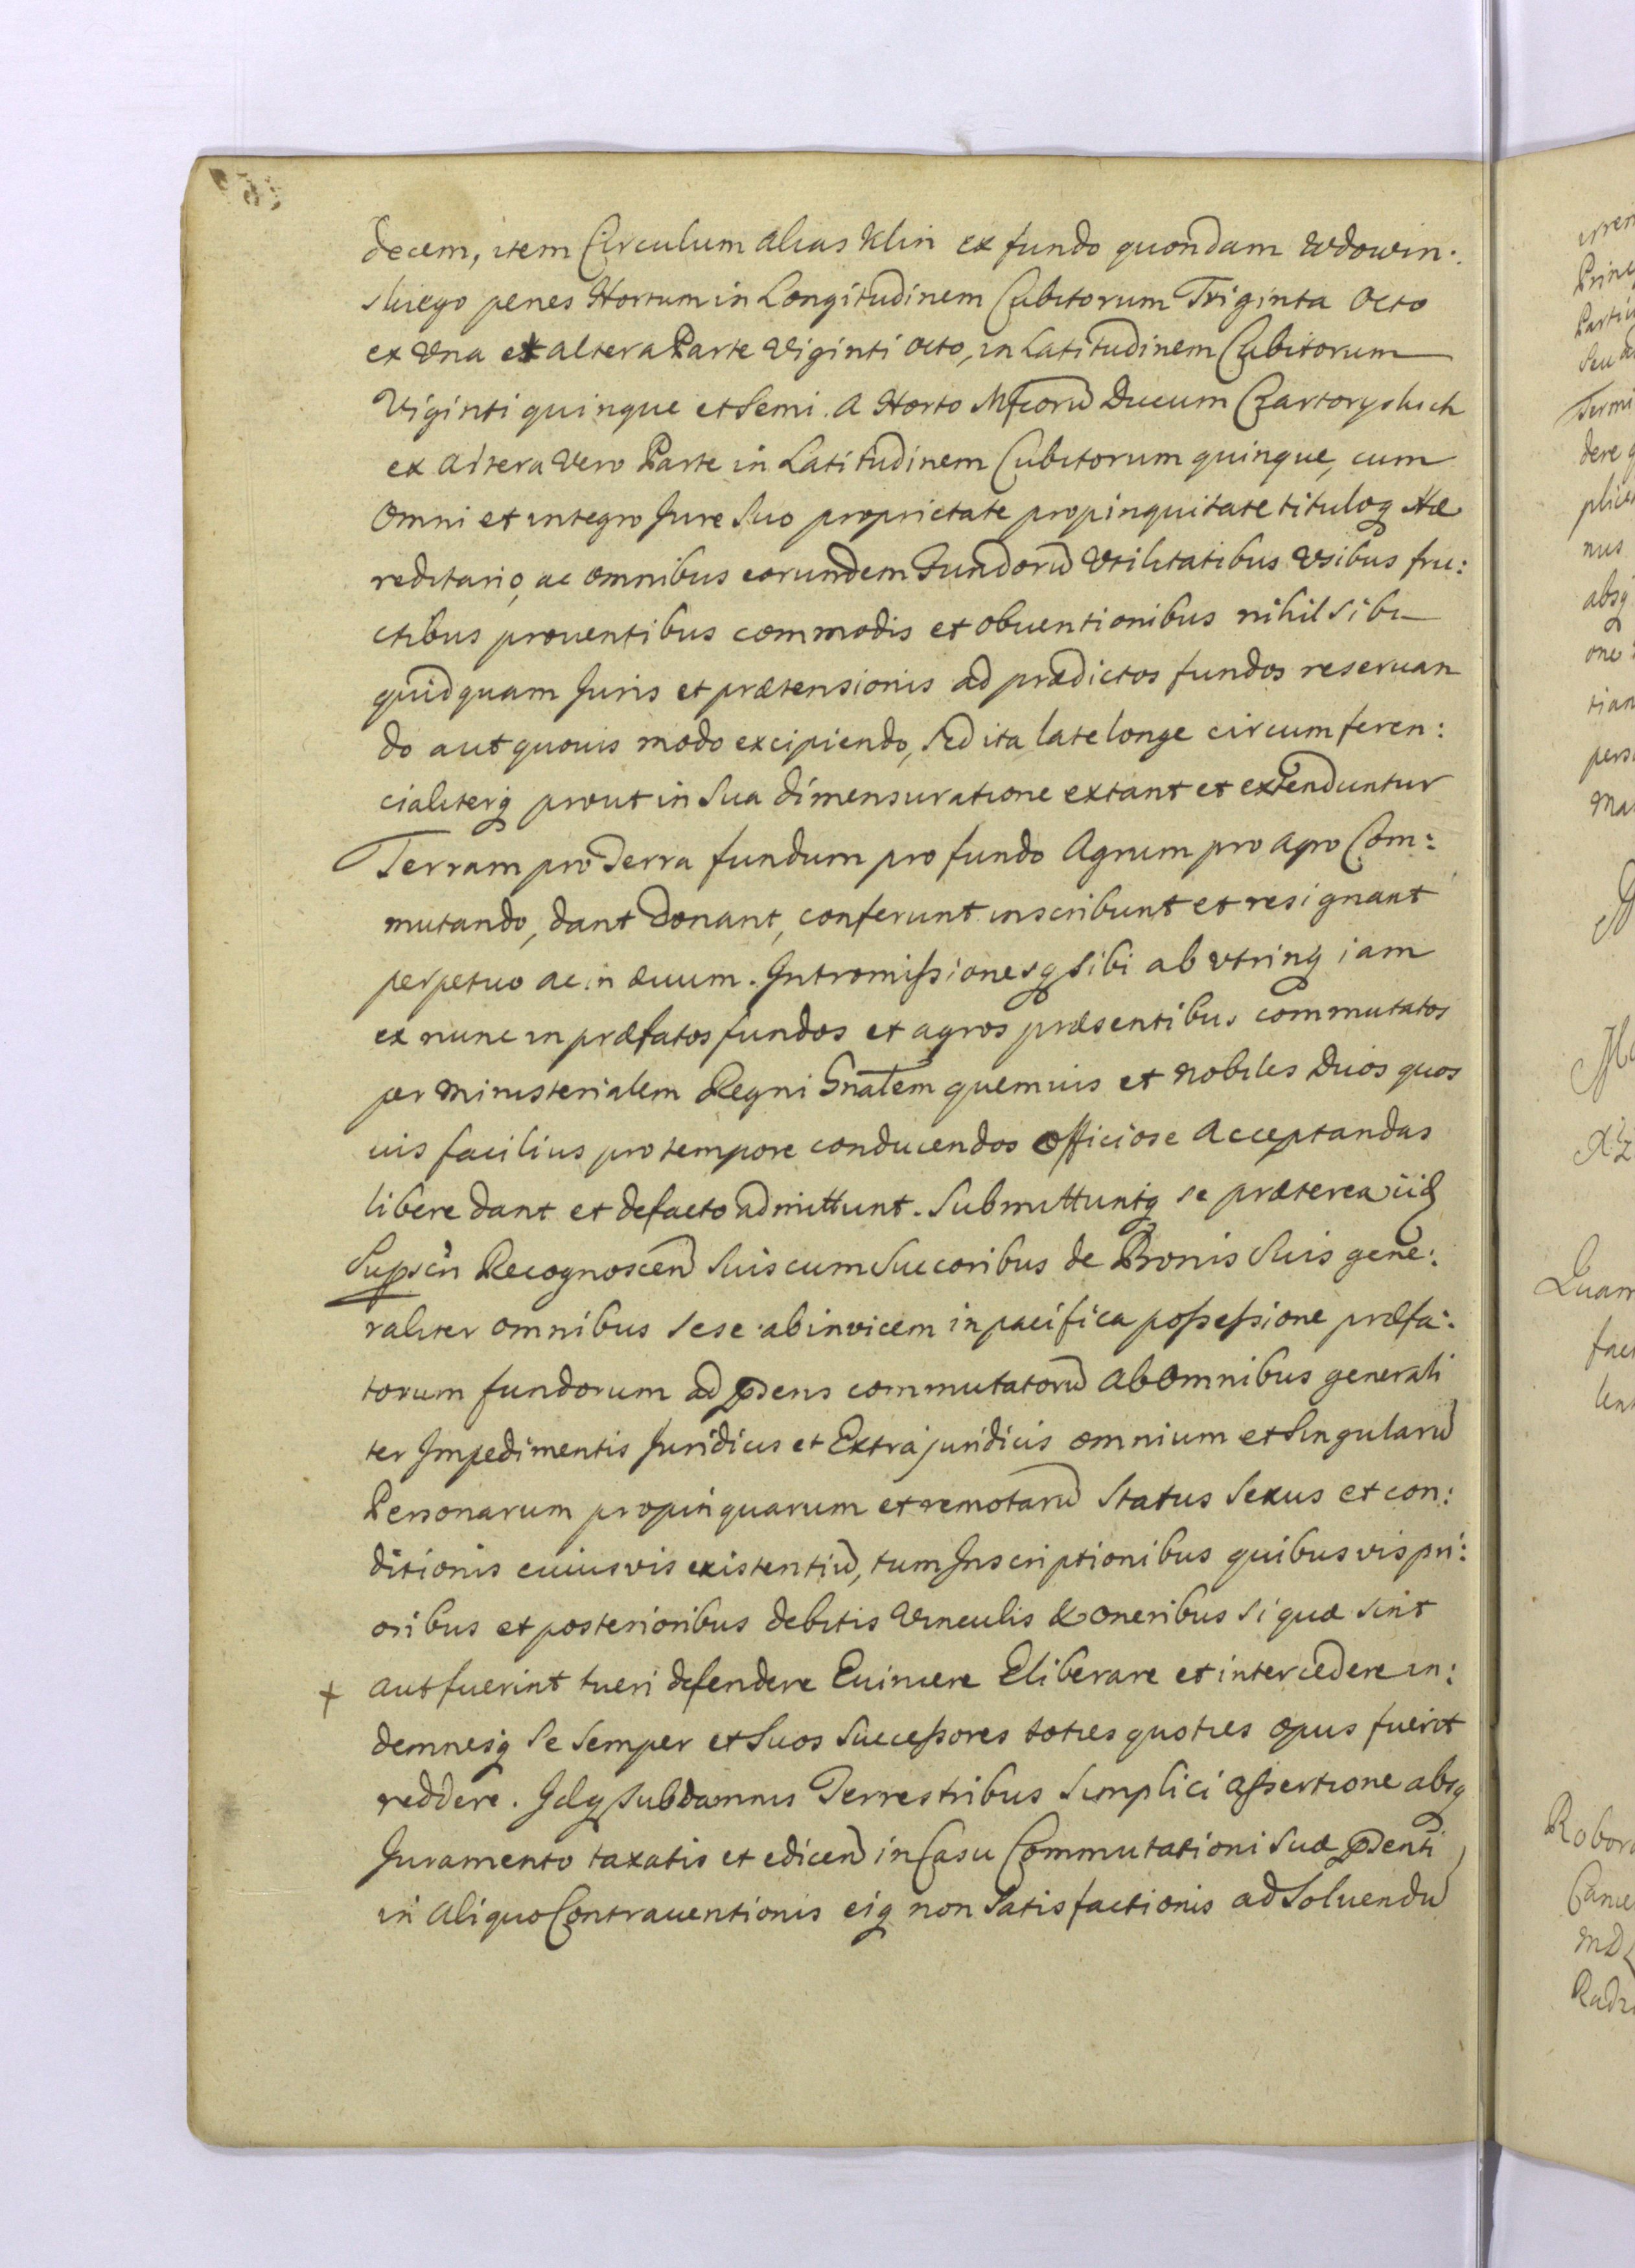 decem, item Circulum alias Klin ex fundo quondam Wdowin:
skiego penes Hortum in Longitudinem Cubitorum Triginta Octo
ex Una et altera Parte Viginti octo, in Latitudinem Cubitorum
Viginti quinque et Semi. A Horto Mficorũ Ducum Czartoryskich
ex altera Vero Parte in Latitudinem Cubitorum quinque, cum
Omni et integro Jure Suo proprietate propinquitate tituloq Hæ
reditario, ac omnibus eorundem Fundorũ Vtilitatibus Vsibus fru:
ctibus prouentibus commodis et obuentionibus nihil Sibi
quidquam Juris et prætensionis ad prædictos fundos reseruan
do aut quouis modo excipiendo, Sed ita late longe circumferen:
cialiterq prout in Sua dimensuratione extant et extenduntur
Terram pro Terra fundum pro fundo Agrum pro agro Com:
mutando, dant Donant, conferunt inscribunt et resignant
perpetuo ac in æuum. Intromissionesq Sibi ab vtrinq iam
ex nunc in præfatos fundos et agros præsentibus commutatos
per ministerialem Regni Gnalem quemuis et nobiles Duos quos
uis facilius pro tempore conducendos officiose Acceptandas
libere dant et defacto admittunt. Submittuntq se præterea iid
Supscn Recognoscen Suis cum Succoribus de Bonis Suis gene:
raliter omnibus sese ab invicem in pacifica possessione præfa:
torum fundorum ad psens commutatorũ ab Omnibus generali
ter Impedimentis Juridicis et Extrajuridicis omnium et Singularũ
Personarum propinquarum et remotarũ Status Sexus et con:
ditionis cuiusvis existentiũ, tum Inscriptionibus quibusvis pri:
oribus et posterioribus debitis Vinculis & oneribus Si quæ sint
+ aut fuerint tueri defendere Euincere Eliberare et intercedere in:
demnesq Se Semper et Suos Successores toties quoties opus fuerit
reddere. Idq Sub damnis Terrestribus Simplici assertione absq
Juramento taxatis et edicen in Casu Commutationi Suæ psenti
in aliquo Contrauentionis eiq non Satisfactionis ad Soluendũ